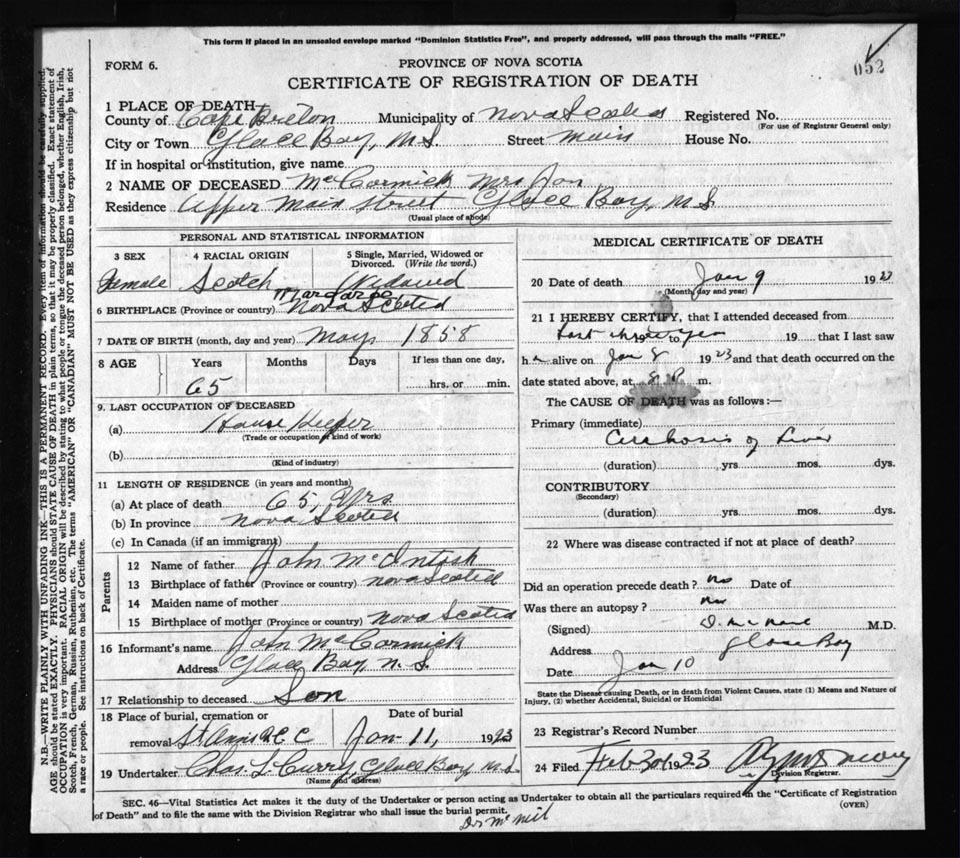 This form if placed in an unsealed envelope marked "Dominion Statistics Free", and properly addressed, will pass through the mails "FREE."
052
FORM 6.
PROVINCE OF NOVA SCOTIA
CERTIFICATE OF REGISTRATION OF DEATH
1 PLACE OF DEATH—
County of Cape Breton Municipality of Nova Scotia Registered No.
(For use of Registrar General only)
City or Town Glace Bay, N.S. Street Main House No.
If in hospital or institution, give name
2 NAME OF DECEASED McCormick Mrs Jon
Residence Upper Main Street Glace Bay, N.S.
(Usual place of abode)
PERSONAL AND STATISTICAL INFORMATION
3 SEX 4 RACIAL ORIGIN 5 Single, Married, Widowed or Divorced. (Write the word.)
Female Scotch Widowed
Margaree
6 BIRTHPLACE (Province or country) Nova Scotia
7 DATE OF BIRTH (month, day and year) May 1858
8 AGE Years Months Days If less than one day,
65 hrs. or min.
9. LAST OCCUPATION OF DECEASED
(a) House Keeper
(Trade or occupation or kind of work)
(b)
(Kind of industry)
11 LENGTH OF RESIDENCE (in years and months)
(a) At place of death 65, Yrs.
(b) In province Nova Scotia
(c) In Canada (if an immigrant)
Parents
12 Name of father John McIntosh
13 Birthplace of father (Province or country) Nova Scotia
14 Maiden name of mother
15 Birthplace of mother (Province or country) Nova Scotia
16 Informant's name John McCormick
Address Glace Bay N.S.
17 Relationship to deceased Son
18 Place of burial, cremation or removal Date of burial
St Anns R C C Jan 11, 1923
19 Undertaker Chas. L. Curry, Glace Bay, N.S.
(Name and address)
MEDICAL CERTIFICATE OF DEATH
20 Date of death Jan 9 1923
(Month, day and year)
21 I HEREBY CERTIFY, that I attended deceased from
Last to 19 that I last saw
h alive on Jan 8 1923 and that death occurred on the
date stated above, at 8 P. m.
The CAUSE OF DEATH was as follows:—
Primary (immediate)
Cirrhosis of Liver
(duration) yrs. mos. dys.
CONTRIBUTORY
(Secondary)
(duration) yrs. mos. dys.
22 Where was disease contracted if not at place of death?
Did an operation precede death? no Date of
Was there an autopsy? no
(Signed) M.D.
Address Glace Bay
Date Jan 10
State the Disease causing Death, or in death from Violent Causes, state (1) Means and Nature of Injury, (2) whether Accidental, Suicidal or Homicidal
23 Registrar's Record Number
24 Filed Feb 3rd 1923
Division Registrar.
SEC. 46—Vital Statistics Act makes it the duty of the Undertaker or person acting as Undertaker to obtain all the particulars required in the "Certificate of Registration of Death" and to file the same with the Division Registrar who shall issue the burial permit. (OVER)
Dr McNeil
N.B.—WRITE PLAINLY WITH UNFADING INK—THIS IS A PERMANENT RECORD. Every item of information should be carefully supplied.
AGE should be stated EXACTLY. PHYSICIANS should STATE CAUSE OF DEATH in plain terms, so that it may be properly classified. Exact statement of
OCCUPATION is very important. RACIAL ORIGIN will be described by stating to what people or tongue the deceased person belonged, whether English, Irish,
Scotch, French, German, Russian, Ruthenian, etc. The terms "AMERICAN" OR "CANADIAN" MUST NOT BE USED as they express citizenship but not
a race or people. See instructions on back of Certificate.